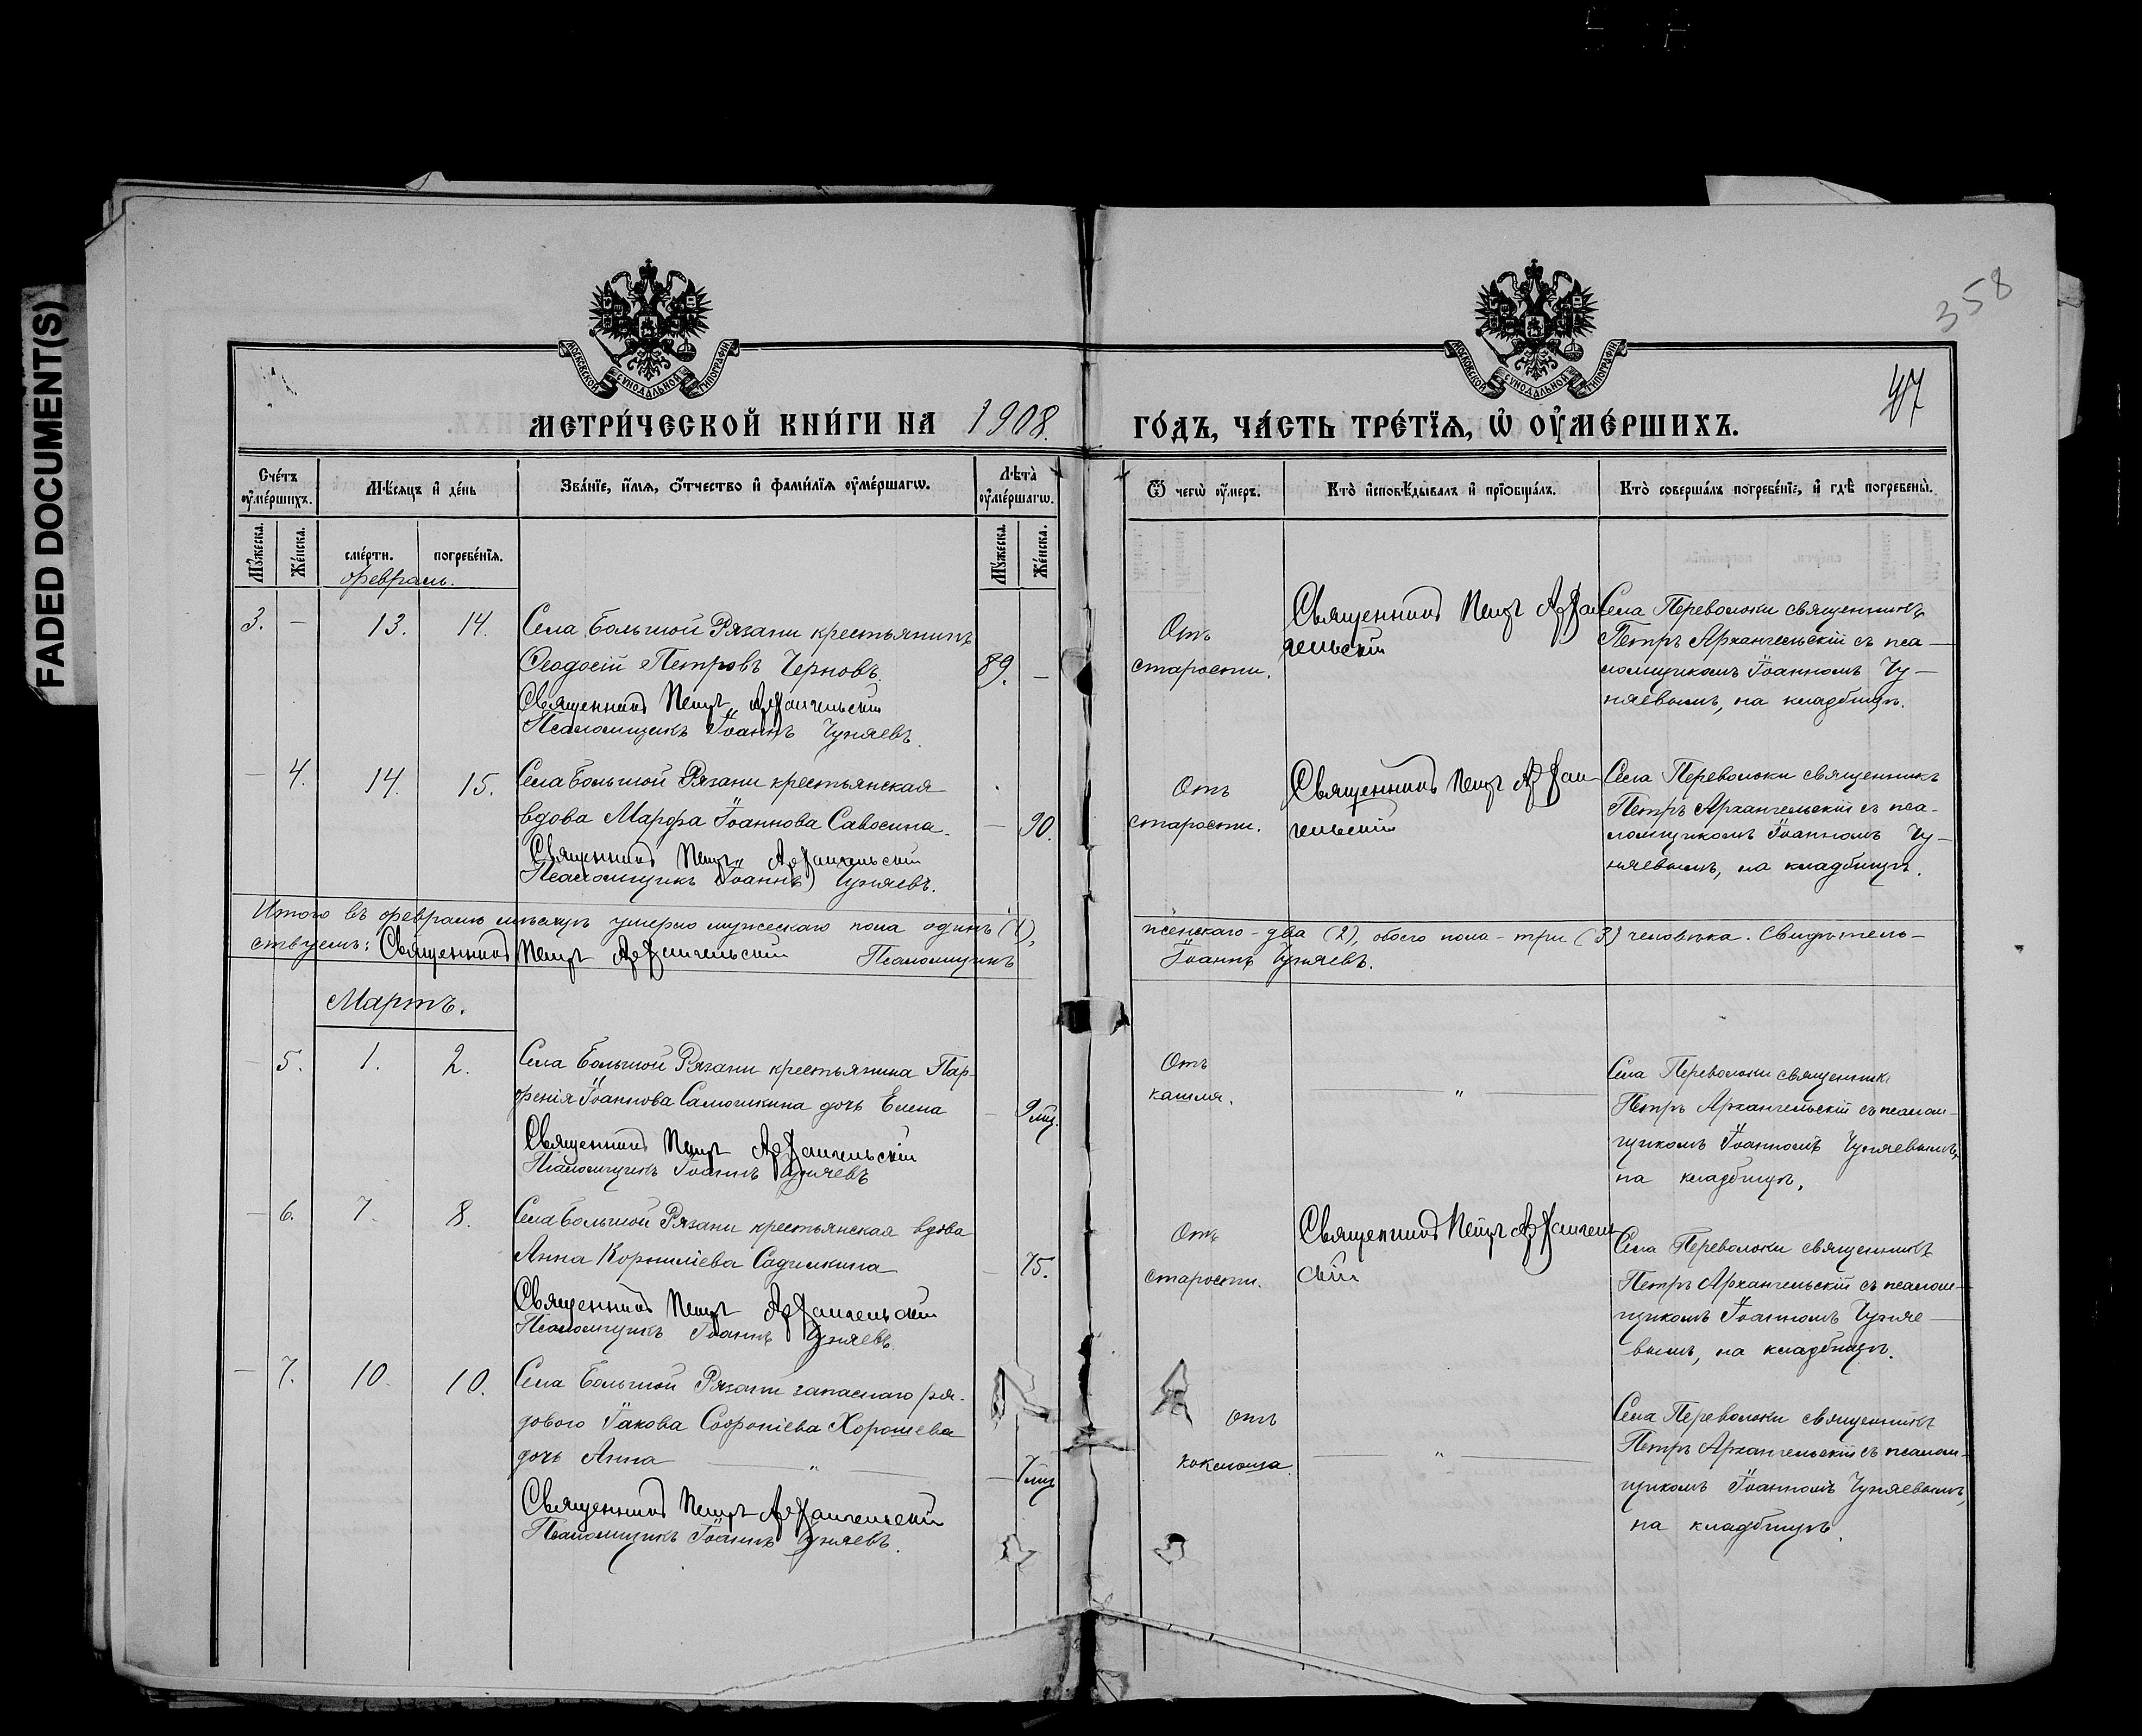 FADED DOCUMENT(S)
358
47
МОСКОВСКОЙ СУНОДАЛЬНОЙ ТИПОГРАФІИ
МОСКОВСКОЙ СУНОДАЛЬНОЙ ТИПОГРАФІИ
МЕТРИ́ЧЕСКОЙ КНИ́ГИ НА 1908. ГО́ДЪ, ЧА́СТЬ ТРЕ́ТІѦ, Ѡ҆ ОУ҆МЕ́РШИХЪ.
Сче́тъ оу҆ме́ршихъ.
Мѣ́сяцъ и҆ де́нь
Зва́нїе, и҆́мѧ, ѻ҆́тчество и҆ фами́лїѧ оу҆ме́ршагѡ.
Лѣта̀ оу҆ме́ршагѡ.
Ѿ чегѡ̀ оу҆́меръ.
Кто̀ и҆сповѣ́дывалъ и҆ прїѡбща́лъ.
Кто̀ соверша́лъ погребе́нїе, и҆ гдѣ̀ погребены̀.
Му́жеска.
Же́нска.
сме́рти.
погребе́нїѧ.
Му́жеска.
Же́нска.
Февраль.
3. — 13. 14.
Села Большой Рязани крестьянинъ
Ѳеодосій Петровъ Черновъ.
Священникъ Петръ Архангельскій
Псаломщикъ Іоаннъ Чуняевъ.
89. —
Отъ
старости.
Священникъ Петръ Архан
гельскій
Села Переволоки священникъ
Петръ Архангельскій съ пса—
ломщикомъ Іоанномъ Чу—
няевымъ, на кладбищѣ.
— 4. 14. 15.
Села Большой Рязани крестьянская
вдова Марфа Іоаннова Савосина.
Священникъ Петръ Архангельскій
Псаломщикъ Іоаннъ Чуняевъ.
— 90.
Отъ
старости.
Священникъ Петръ Архан
гельскій
Села Переволоки священникъ
Петръ Архангельскій съ пса-
ломщикомъ Іоанномъ Чу—
няевымъ, на кладбищѣ.
Итого въ февралѣ мѣсяцѣ умерло мужескаго пола одинъ (1), женскаго - два (2), обоего пола - три (3) человѣка. Свидѣтель—
ствуемъ: Священникъ Петръ Архангельскій Псаломщикъ Іоаннъ Чуняевъ.
Мартъ.
— 5. 1. 2.
Села Большой Рязани крестьянина Пар-
фенія Іоаннова Самошкина дочь Елена
Священникъ Петръ Архангельскій
Псаломщикъ Іоаннъ Чуняевъ
— 9 мц.
Отъ
кашля.
— " —
Села Переволоки священникъ
Петръ Архангельскій съ псалом—
щикомъ Іоанномъ Чуняевымъ,
на кладбищѣ.
— 6. 7. 8.
Села Большой Рязани крестьянская вдова
Анна Корниліева Садимкина
Священникъ Петръ Архангельскій
Псаломщикъ Іоаннъ Чуняевъ.
— 75.
Отъ
старости.
Священникъ Петръ Архангель
скій
Села Переволоки священникъ
Петръ Архангельскій съ псалом—
щикомъ Іоанномъ Чуняе—
вымъ, на кладбищѣ.
— 7. 10. 10.
Села Большой Рязани запаснаго ря-
дового Іакова Софроніева Хорошева
дочь Анна — " —
Священникъ Петръ Архангельскій
Псаломщикъ Іоаннъ Чуняевъ.
— 7 мц
отъ
коклюша.
— " —
Села Переволоки священникъ
Петръ Архангельскій съ псалом-
щикомъ Іоанномъ Чуняевымъ,
на кладбищѣ.